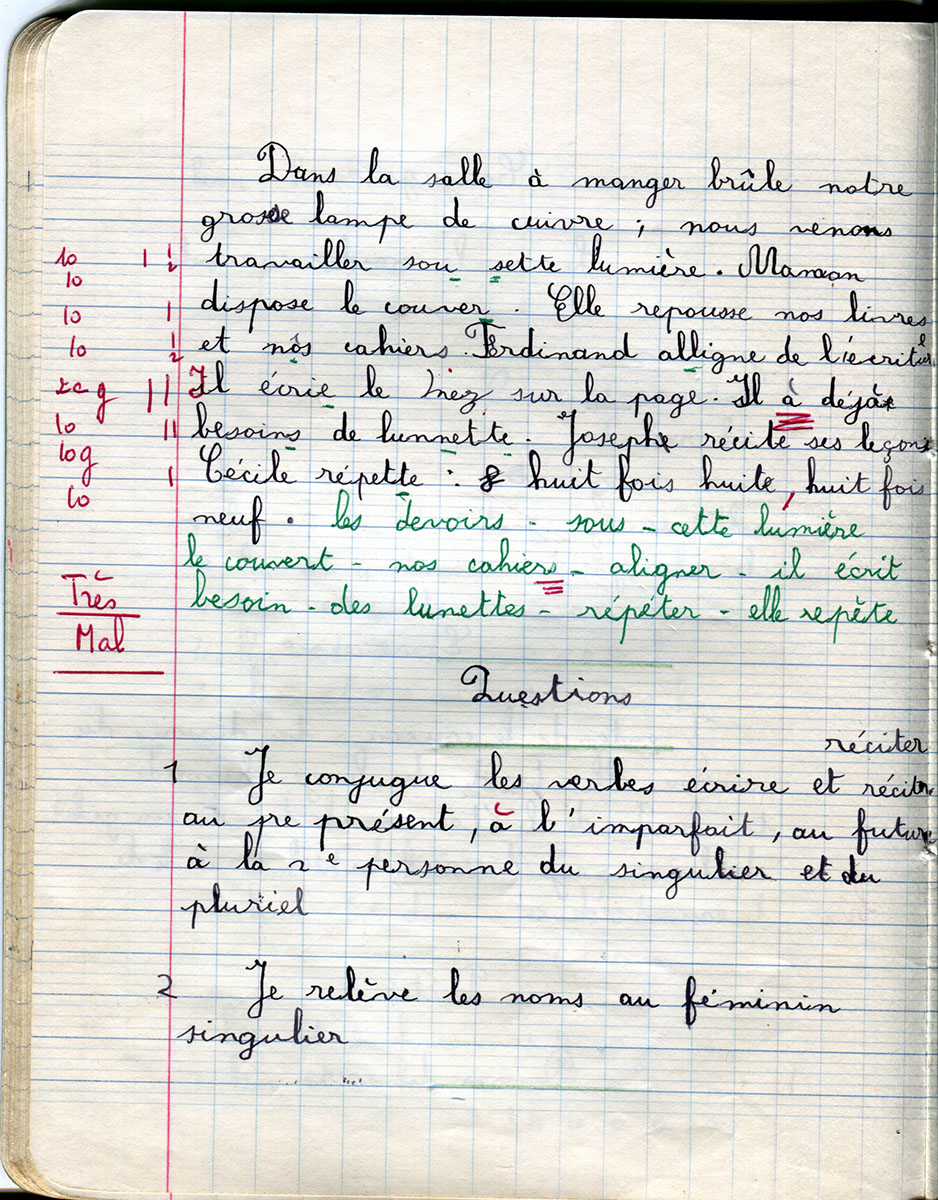 Dans la salle à manger brûle notre
grosse lampe de cuivre ; nous venons
10 1 1/2 travailler sou sette lumière. Maman
10
10 1 dispose le couver. Elle repousse nos livres
10 1/2 et nos cahiers. Ferdinand alligne de l'écriture
g || Il écrie le nez sur la page. Il à déjà
10 || besoins de lunnette. Joseph récite ses leçons
10g 1 Cécile répette : huit fois huite, huit fois
10 neuf. les devoirs - sous - cette lumière
le couvert - nos cahiers - aligner - il écrit
Très besoin - des lunettes - répéter - elle repète
Mal
Questions
réciter
1 Je conjugue les verbes écrire et réciter
au pre présent, à l'imparfait, au future
à la 2e personne du singulier et du
pluriel
2 Je relève les noms au féminin
singulier